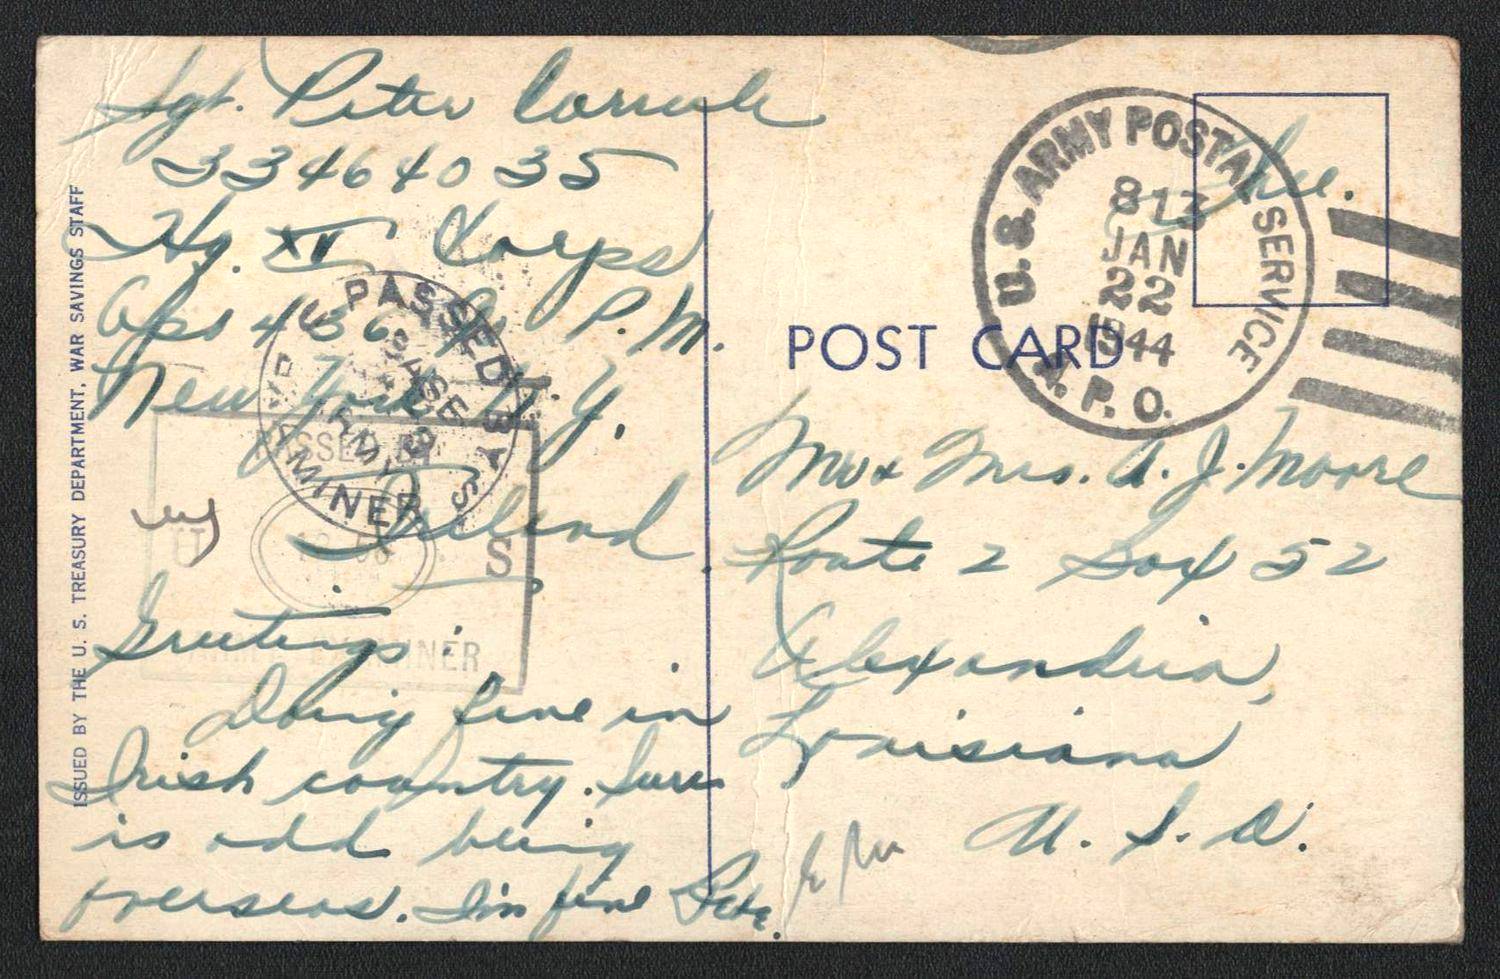 Sgt. Peter
33464035
Hq. XV Corps
Apo 436 P.M.
New York N.Y.
Ireland
Greetings:
Doing fine in
Irish country. Sure
is odd being
overseas. I'm fine Pete
ISSUED BY THE U. S. TREASURY DEPARTMENT, WAR SAVINGS STAFF
PASSED BY
BASE
ARMY EXAMINER
PASSED BY
U S
ARMY EXAMINER
POST CARD
U. S. ARMY POSTAL SERVICE
813
JAN
22
1944
A. P. O.
Free.
Mr + Mrs. A. J. Moore
Route 2 Box 52
Alexandria,
Louisiana
U. S. A.